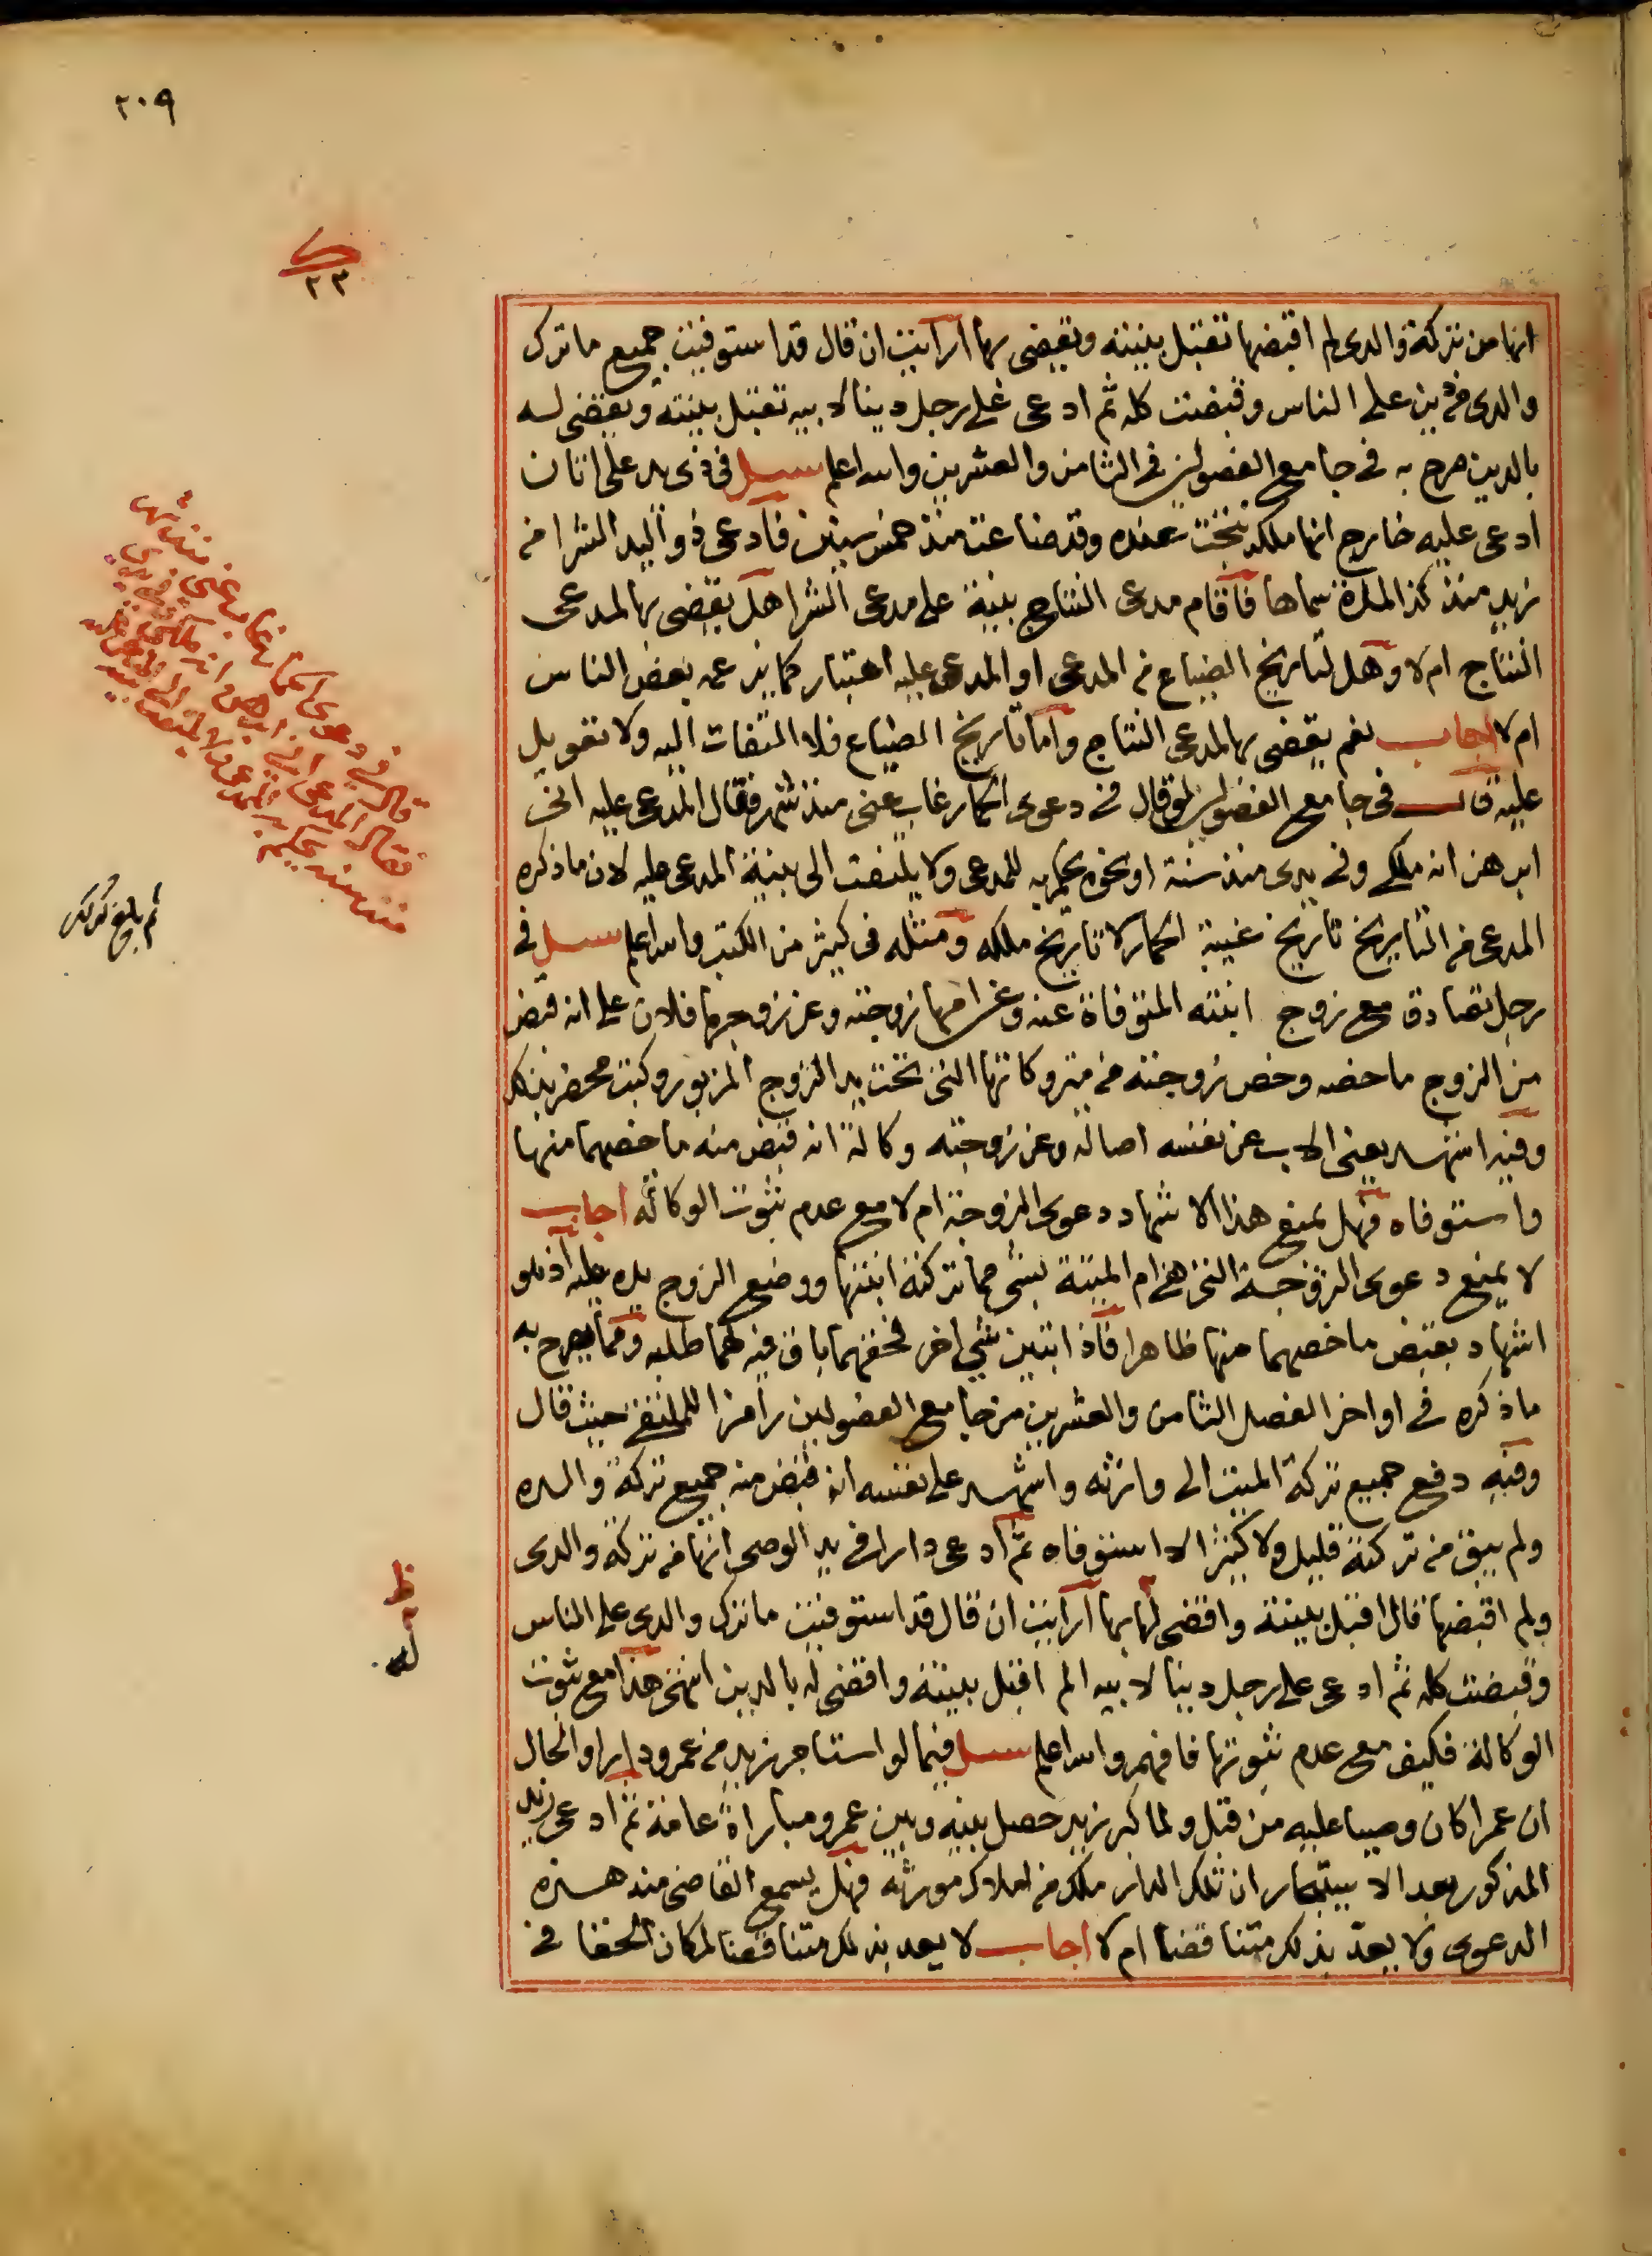 ٢٠٩
٢٣
انها من تركة والدى لم اقبضها تقبل بينته ويقضى بها ارأيت ان قال قد استوفيت جميع ما ترك
والدى من دين على الناس وقبضت كله ثم ادعى على رجل دينا لابيه تقبل بينته ويقضى له
بالدين صرح به فى جامع الفصولين فى الثامن والعشرين والله اعلم سئل فى ذى يد على اتان
ادعى عليه خارج انها ملكه نتجت عنده وقد ضاعت منذ خمس سنين فادعى ذو اليد الشرا من
زيد منذ كذا لمدة سماها فاقام مدعى النتاج بينة على مدعى الشرا هل يقضى بها لمدعى
النتاج ام لا وهل لتاريخ الضياع من المدعى او المدعى عليه اعتبار كما يزعمه بعض الناس
ام لا اجاب نعم يقضى بها لمدعى النتاج واما تاريخ الضياع فلا التفات اليه ولا تعويل
عليه قال فى جامع الفصولين لو قال فى دعوى الحمار غاب عنى منذ شهر فقال المدعى عليه انى
ابرهن انه ملكى وفى يدى منذ سنة او نحوه يحكم به للمدعى ولا يلتفت الى بينة المدعى عليه لان ما ذكره
المدعى من التاريخ تاريخ غيبة الحمار لا تاريخ ملكه ومثله فى كثير من الكتب والله اعلم سئل فى
رجل تصادق مع زوج ابنته المتوفاة عنه وعن امها زوجته وعن زوجها فلان على انه قبض
من الزوج ما خصه وخص زوجته من متروكاتها التى تحت يد الزوج المزبور وكتب محضر بذلك
وفيه اشهد يعنى الاب عن نفسه اصالة وعن زوجته وكالة انه قبض منه ما خصهما منها
واستوفاه فهل يمنع هذا الاشهاد دعوى الزوجة ام لا مع عدم ثبوت الوكالة اجاب
لا يمنع دعوى الزوجة التى هى ام الميتة بشى مما تركته ابنتها ووضع الزوج يده عليه اذ هو
اشهاد بقبض ما خصهما منها ظاهرا فاذا تبين شئ اخر فحقهما باق فيه لهما طلبه ومما يصرح به
ما ذكره فى اواخر الفصل الثامن والعشرين من جامع الفصولين رامزا للملتقى حيث قال
وفيه دفع جميع تركة الميت الى وارثه واشهد على نفسه انه قبض منه جميع تركة والده
ولم يبق من تركته قليل ولا كثير الا استوفاه ثم ادعى دارا فى يد الوصى انها من تركة والدى
ولم اقبضها قال اقبل بينته واقضى له بها ارأيت ان قال قد استوفيت ما ترك والدى على الناس
وقبضت كله ثم ادعى على رجل دينا لابيه الم اقبل بينته واقضى له بالدين انتهى هذا مع ثبوت
الوكالة فكيف مع عدم ثبوتها فافهم والله اعلم سئل فيما لو استاجر زيد من عمرو دارا والحال
ان عمرا كان وصيا عليه من قبل ولما كبر زيد حصل بينه وبين عمرو مباراة عامة ثم ادعى زيد
المذكور بعد الاستيجار ان تلك الدار ملكه من املاك مورثه فهل يسمع القاضى منه هذه
الدعوى ولا يعد بذلك متناقضا ام لا اجاب لا يعد بذلك متناقضا لمكان الخفا فى
قال فى دعوى الحمار غاب عنى منذ شهر
فقال المدعى عليه انى ابرهن انه ملكى وفى يدى
منذ سنة يحكم به للمدعى ولا يلتفت الى بينة